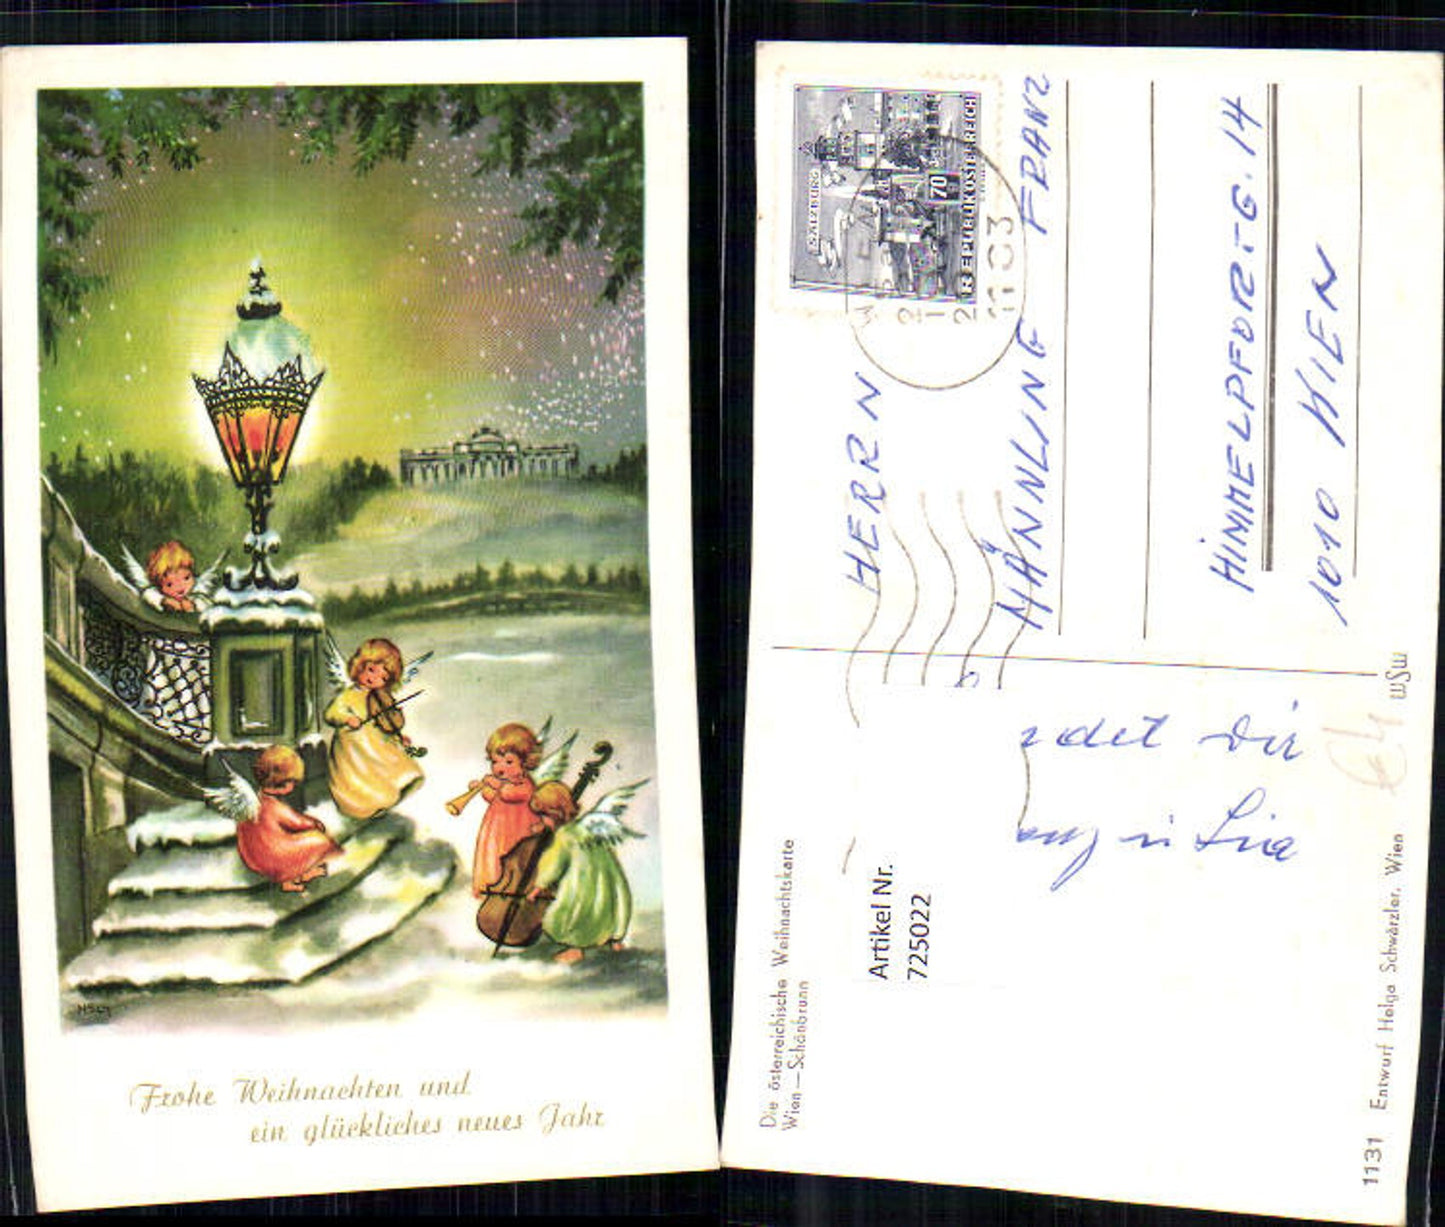 Frohe Weihnachten und
ein glückliches neues Jahr
SALZBURG
70
REPUBLIK ÖSTERREICH
WIEN
1103
HERRN
MÄNNLING FRANZ
HIMMELPFORTG. 14
1010 WIEN
WSW
Dir
in
Artikel Nr.
725022
Die österreichische Weihnachtskarte
Wien—Schönbrunn
1131 Entwurf Helga Schwärzler, Wien